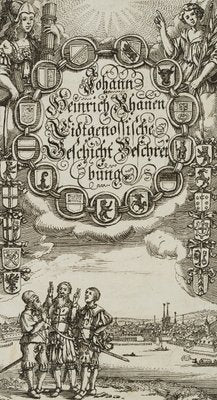 Johann
Heinrich Rhanen
Eidtgenossische
Geschicht Beschrei
bung